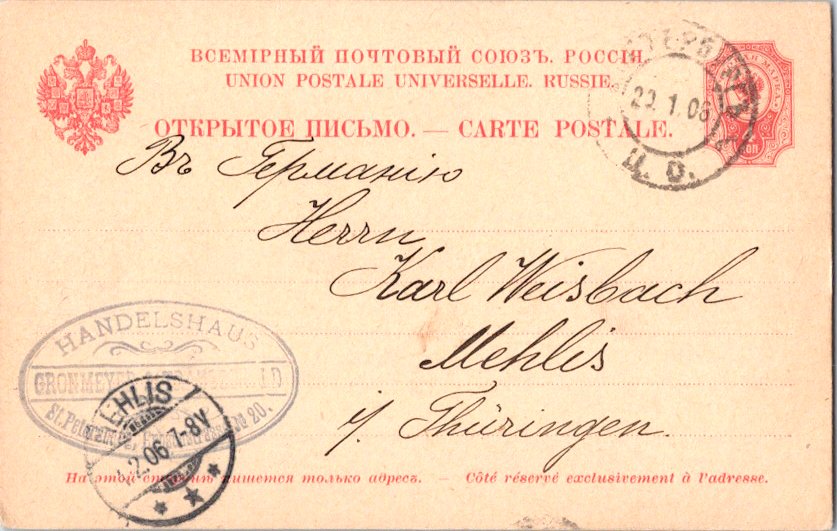 ВСЕМІРНЫЙ ПОЧТОВЫЙ СОЮЗЪ. РОССІЯ.
UNION POSTALE UNIVERSELLE. RUSSIE.
ОТКРЫТОЕ ПИСЬМО. — CARTE POSTALE.
20.1.06
Ц. О.
Въ Германію
Herrn
Karl Weisbach
Mehlis
i/ Thüringen.
HANDELSHAUS
GRONMEYER
20.
EHLIS
2.06 7-8V
На этой сторонѣ пишется только адресъ. — Côté réservé exclusivement à l'adresse.